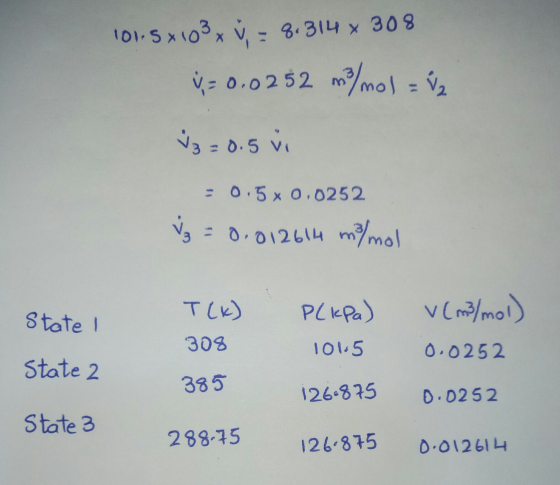 101.5 × 10³ × V̇₁ = 8.314 × 308
V̇₁ = 0.0252 m³/mol = V̇₂
V̇₃ = 0.5 V̇₁
= 0.5 × 0.0252
V̇₃ = 0.012614 m³/mol
T(k) P(kPa) V(m³/mol)
State 1 308 101.5 0.0252
State 2 385 126.875 0.0252
State 3 288.75 126.875 0.012614